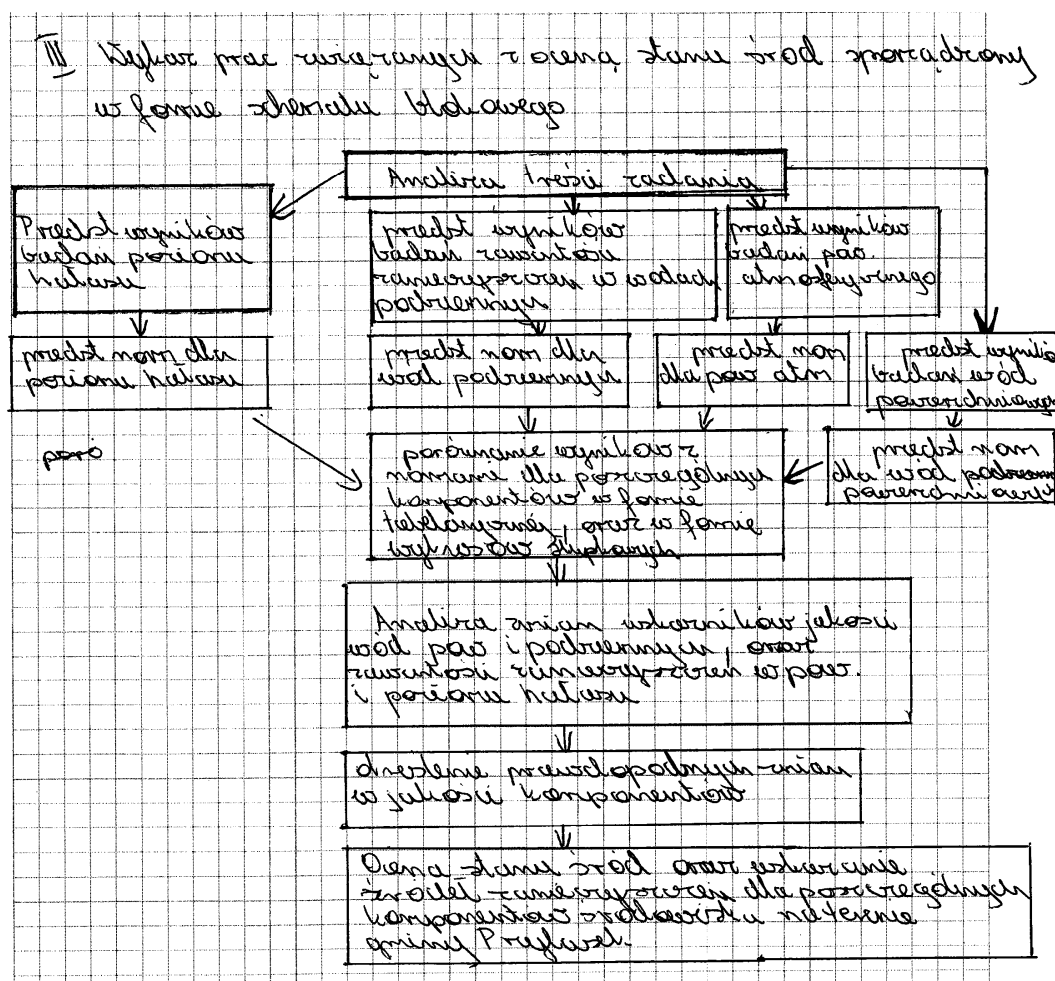 III Wykaz prac związanych z oceną stanu środ sporządzony
w formie schematu blokowego
Analiza treści zadania
Przedst wyników
badań poziomu
hałasu
przedst wyników
badań zawartości
zanieczyszczeń w wodach
podziemnych
przedst wyników
badań pow.
atmosferycznego
przedst norm dla
poziomu hałasu
przedst norm dla
wód podziemnych
przedst norm
dla pow atm
przedst wynikó
badań wód
powierzchniowych
poró
porównanie wyników z
normami dla poszczególnych
komponentów w formie
tabelarycznej, oraz w formie
wykresów słupkowych
przedst norm
dla wód podziemn
powierzchniowych
Analiza zmian wskaźników jakości
wód pow i podziemnych, oraz
zawartości zanieczyszczeń w pow.
i poziomu hałasu
określenie prawdopodnych zmian
w jakości komponentów
Ocena stanu środ oraz wskazanie
źródeł zanieczyszczeń dla poszczególnych
komponentów środowiska na terenie
gminy Przylasek.